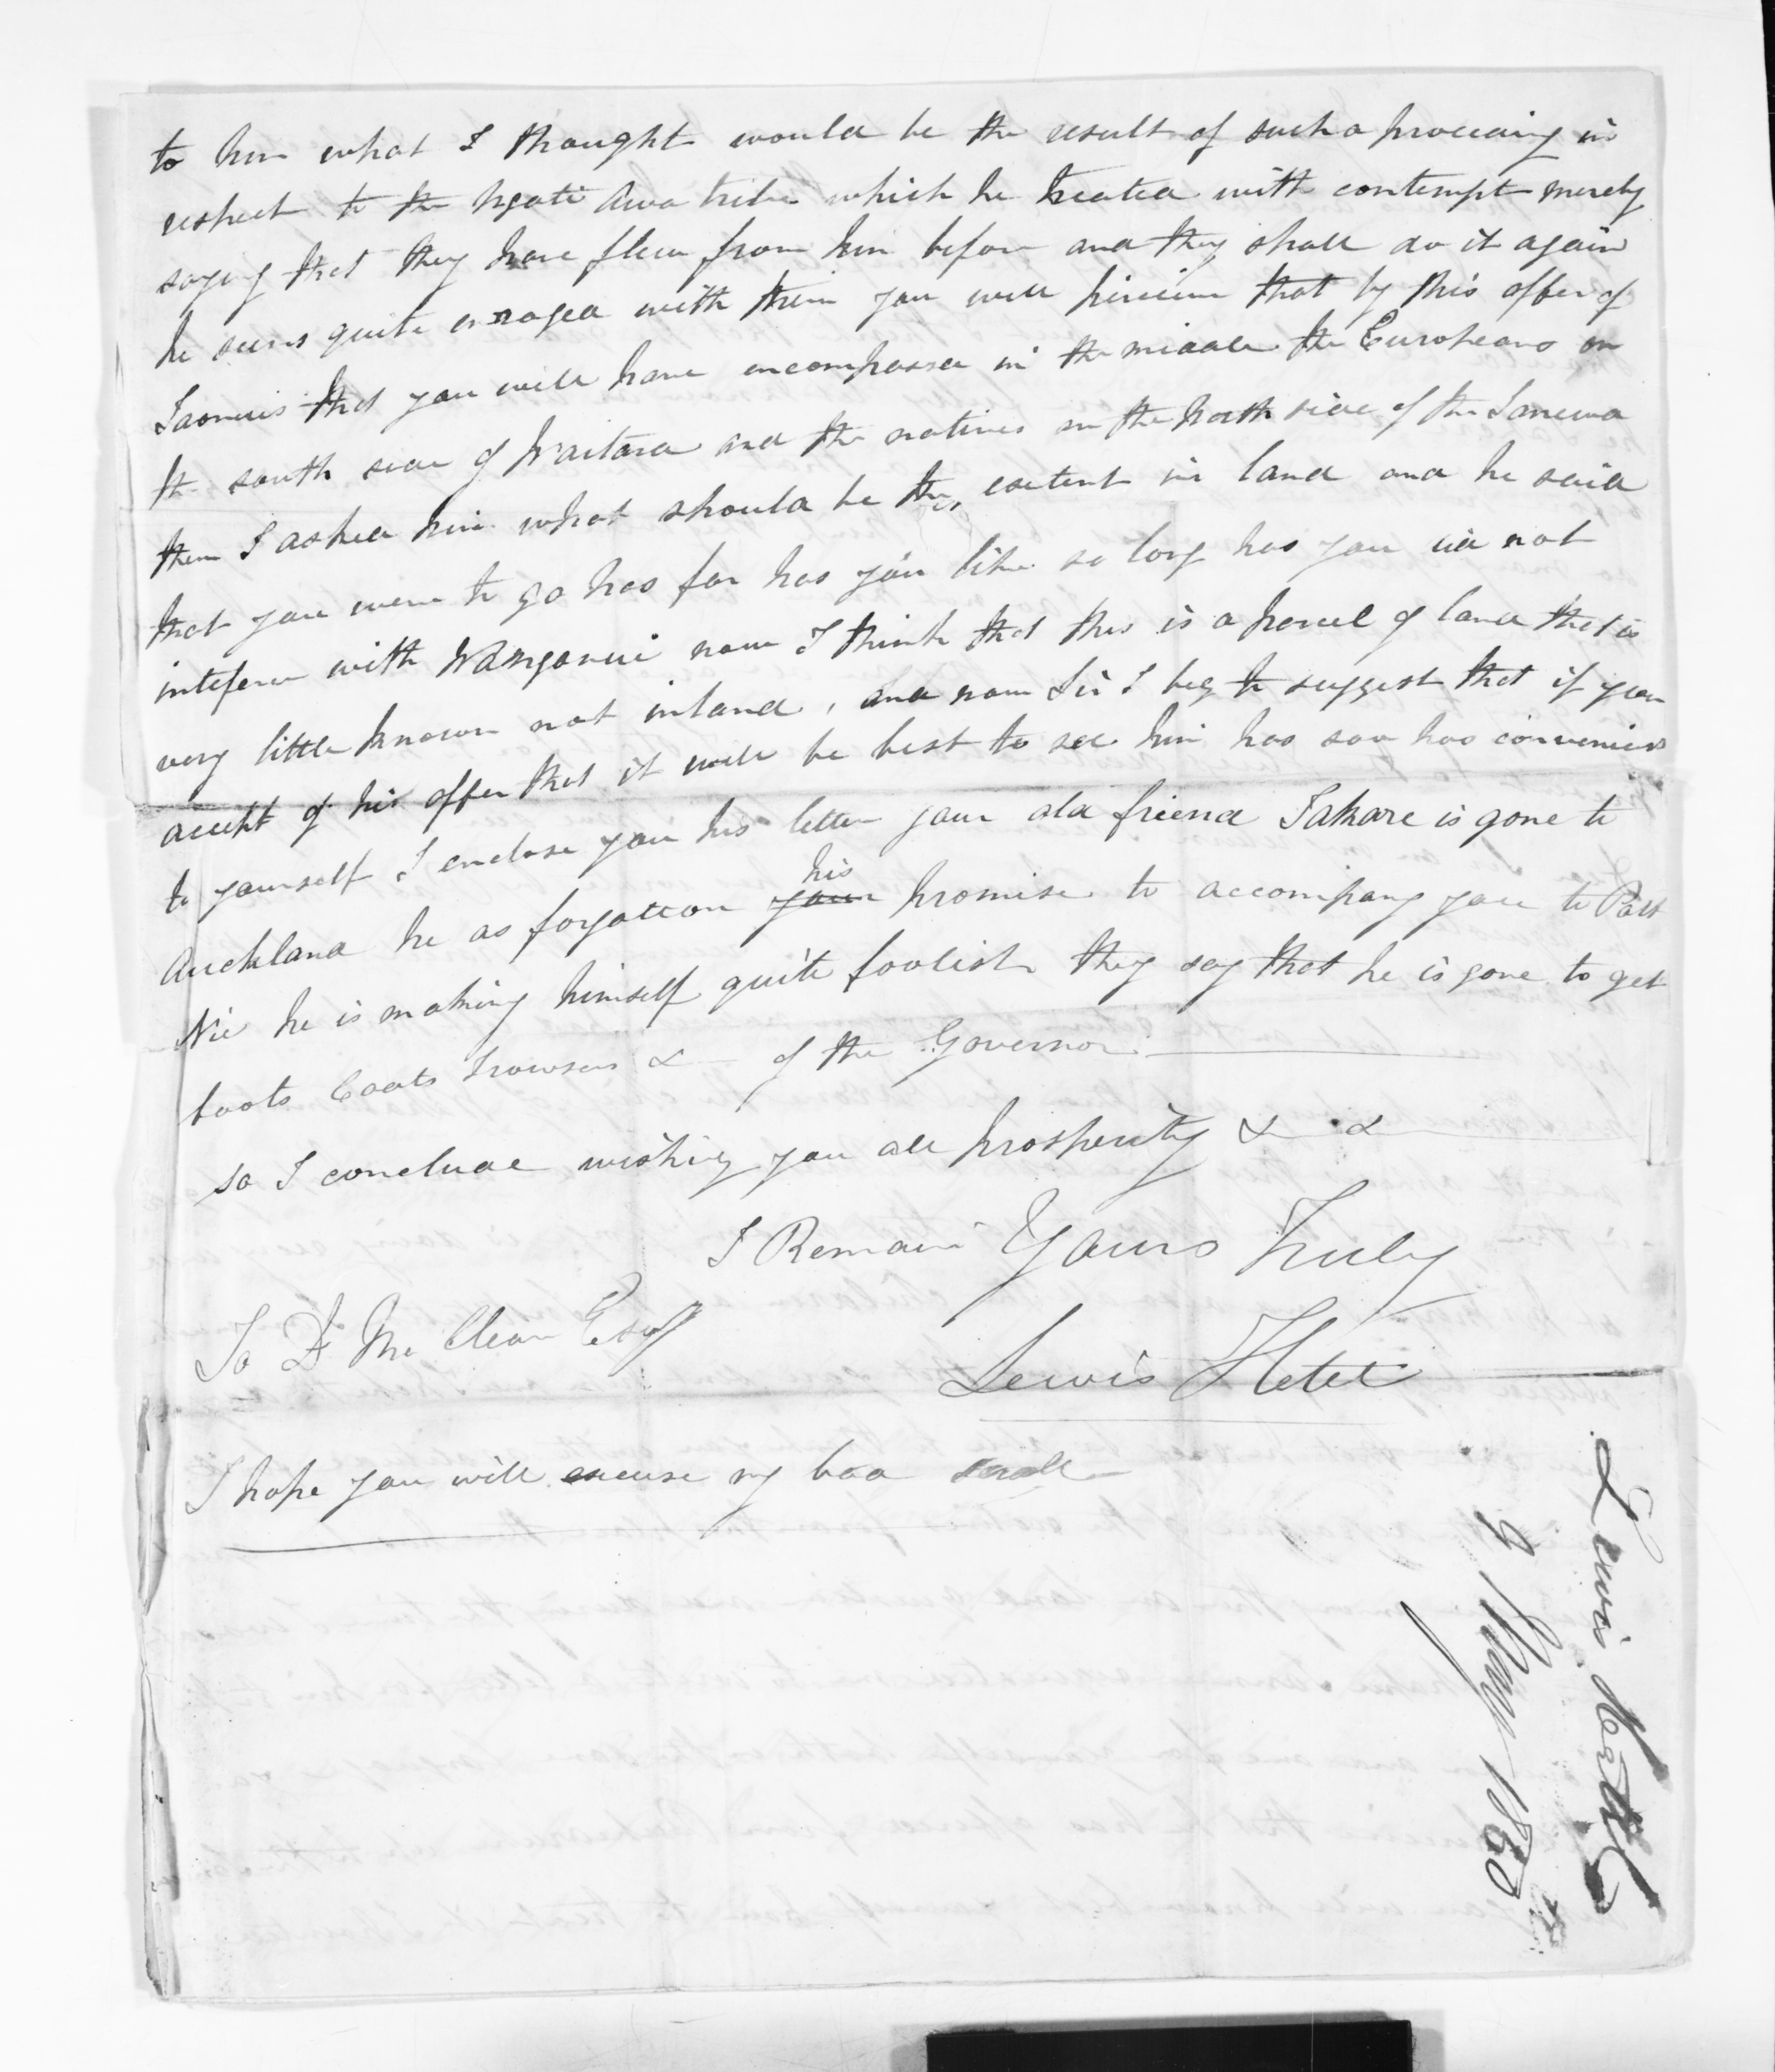 to him what I thought would be the result of such a proceeding in
respect to the Ngati Awa tribe which he treated with contempt merely
saying that they have flew from him before and they shall do it again
he seems quite enraged with them you will perceive that by this offer of
Taonuis that you will have encompassed in the middle the Europeans on
the south side of Waitara and the natives on the North side of the
then I asked him what should be the extent in land and he said
that you were to go has far has you like so long has you did not
intefere with Wanganui now I think that this is a parcel of land that is
very little known not inland, and now Sir I beg to suggest that if you
accept of his offer that it will be best to see him has soon has convenient
to yourself I enclose you his letter your old friend Takare is gone to
Auckland he as forgotton your his promise to accompany you to Port
Nic he is making himself quite foolish they say that he is gone to get
boots Coats Trowsers & of the Governor
so I conclude wishing you all prosperity & &
I Remain Yours Truly
To D Mc Clean Esqr
Lewis Hetet
I hope you will excuse my bad
Lewis Hetet
9 May